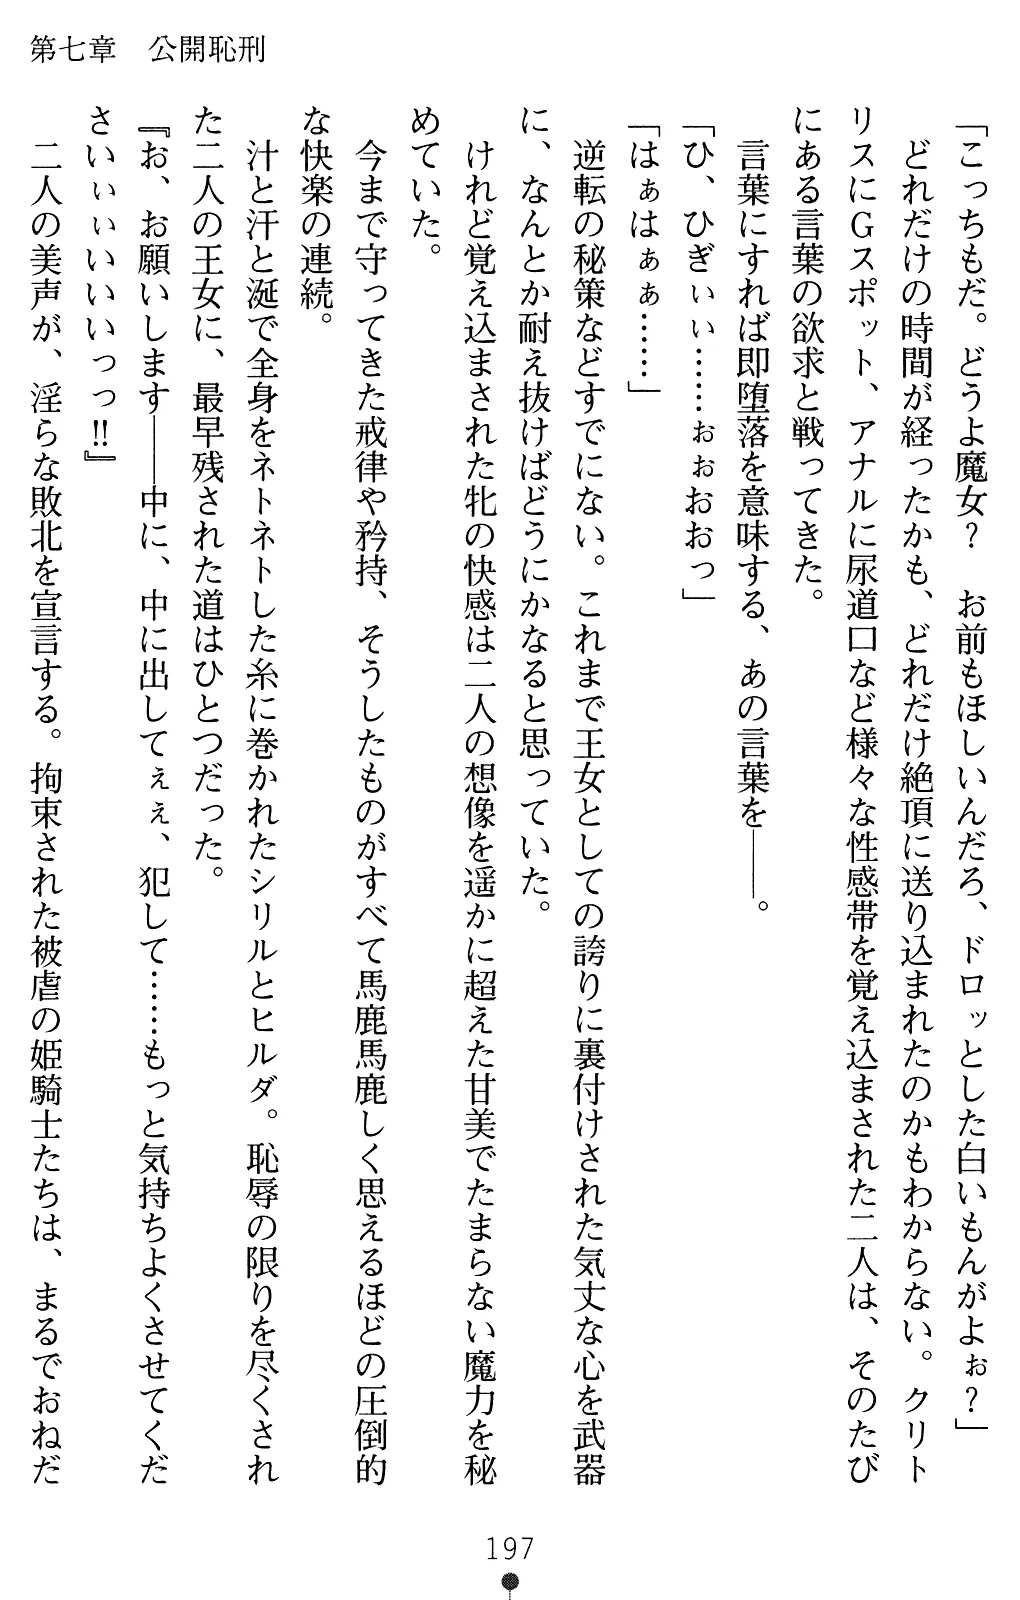 第七章　公開恥刑
「こっちもだ。どうよ魔女？　お前もほしいんだろ、ドロッとした白いもんがよぉ？」
どれだけの時間が経ったかも、どれだけ絶頂に送り込まれたのかもわからない。クリト
リスにＧスポット、アナルに尿道口など様々な性感帯を覚え込まされた二人は、そのたび
にある言葉の欲求と戦ってきた。
言葉にすれば即堕落を意味する、あの言葉を――。
「ひ、ひぎぃぃ……ぉぉおおっ」
「はぁはぁぁ……」
逆転の秘策などすでにない。これまで王女としての誇りに裏付けされた気丈な心を武器
に、なんとか耐え抜けばどうにかなると思っていた。
けれど覚え込まされた牝の快感は二人の想像を遥かに超えた甘美でたまらない魔力を秘
めていた。
今まで守ってきた戒律や矜持、そうしたものがすべて馬鹿馬鹿しく思えるほどの圧倒的
な快楽の連続。
汁と汗と涎で全身をネトネトした糸に巻かれたシリルとヒルダ。恥辱の限りを尽くされ
た二人の王女に、最早残された道はひとつだった。
『お、お願いします――中に、中に出してぇぇ、犯して……もっと気持ちよくさせてくだ
さいぃぃいいいっっ!!』
二人の美声が、淫らな敗北を宣言する。拘束された被虐の姫騎士たちは、まるでおねだ
197